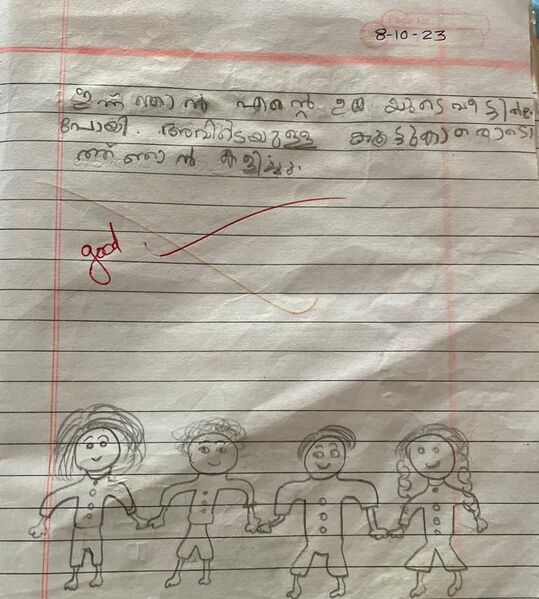 8-10-23
ഇന്ന് ഞാൻ എന്റെ ഉമ്മ യുടെ വീട്ടിൽ
പോയി. അവിടെയുള്ള കൂട്ടുകാരൊടൊ
ത്ത് ഞാൻ കളിച്ചു.
good